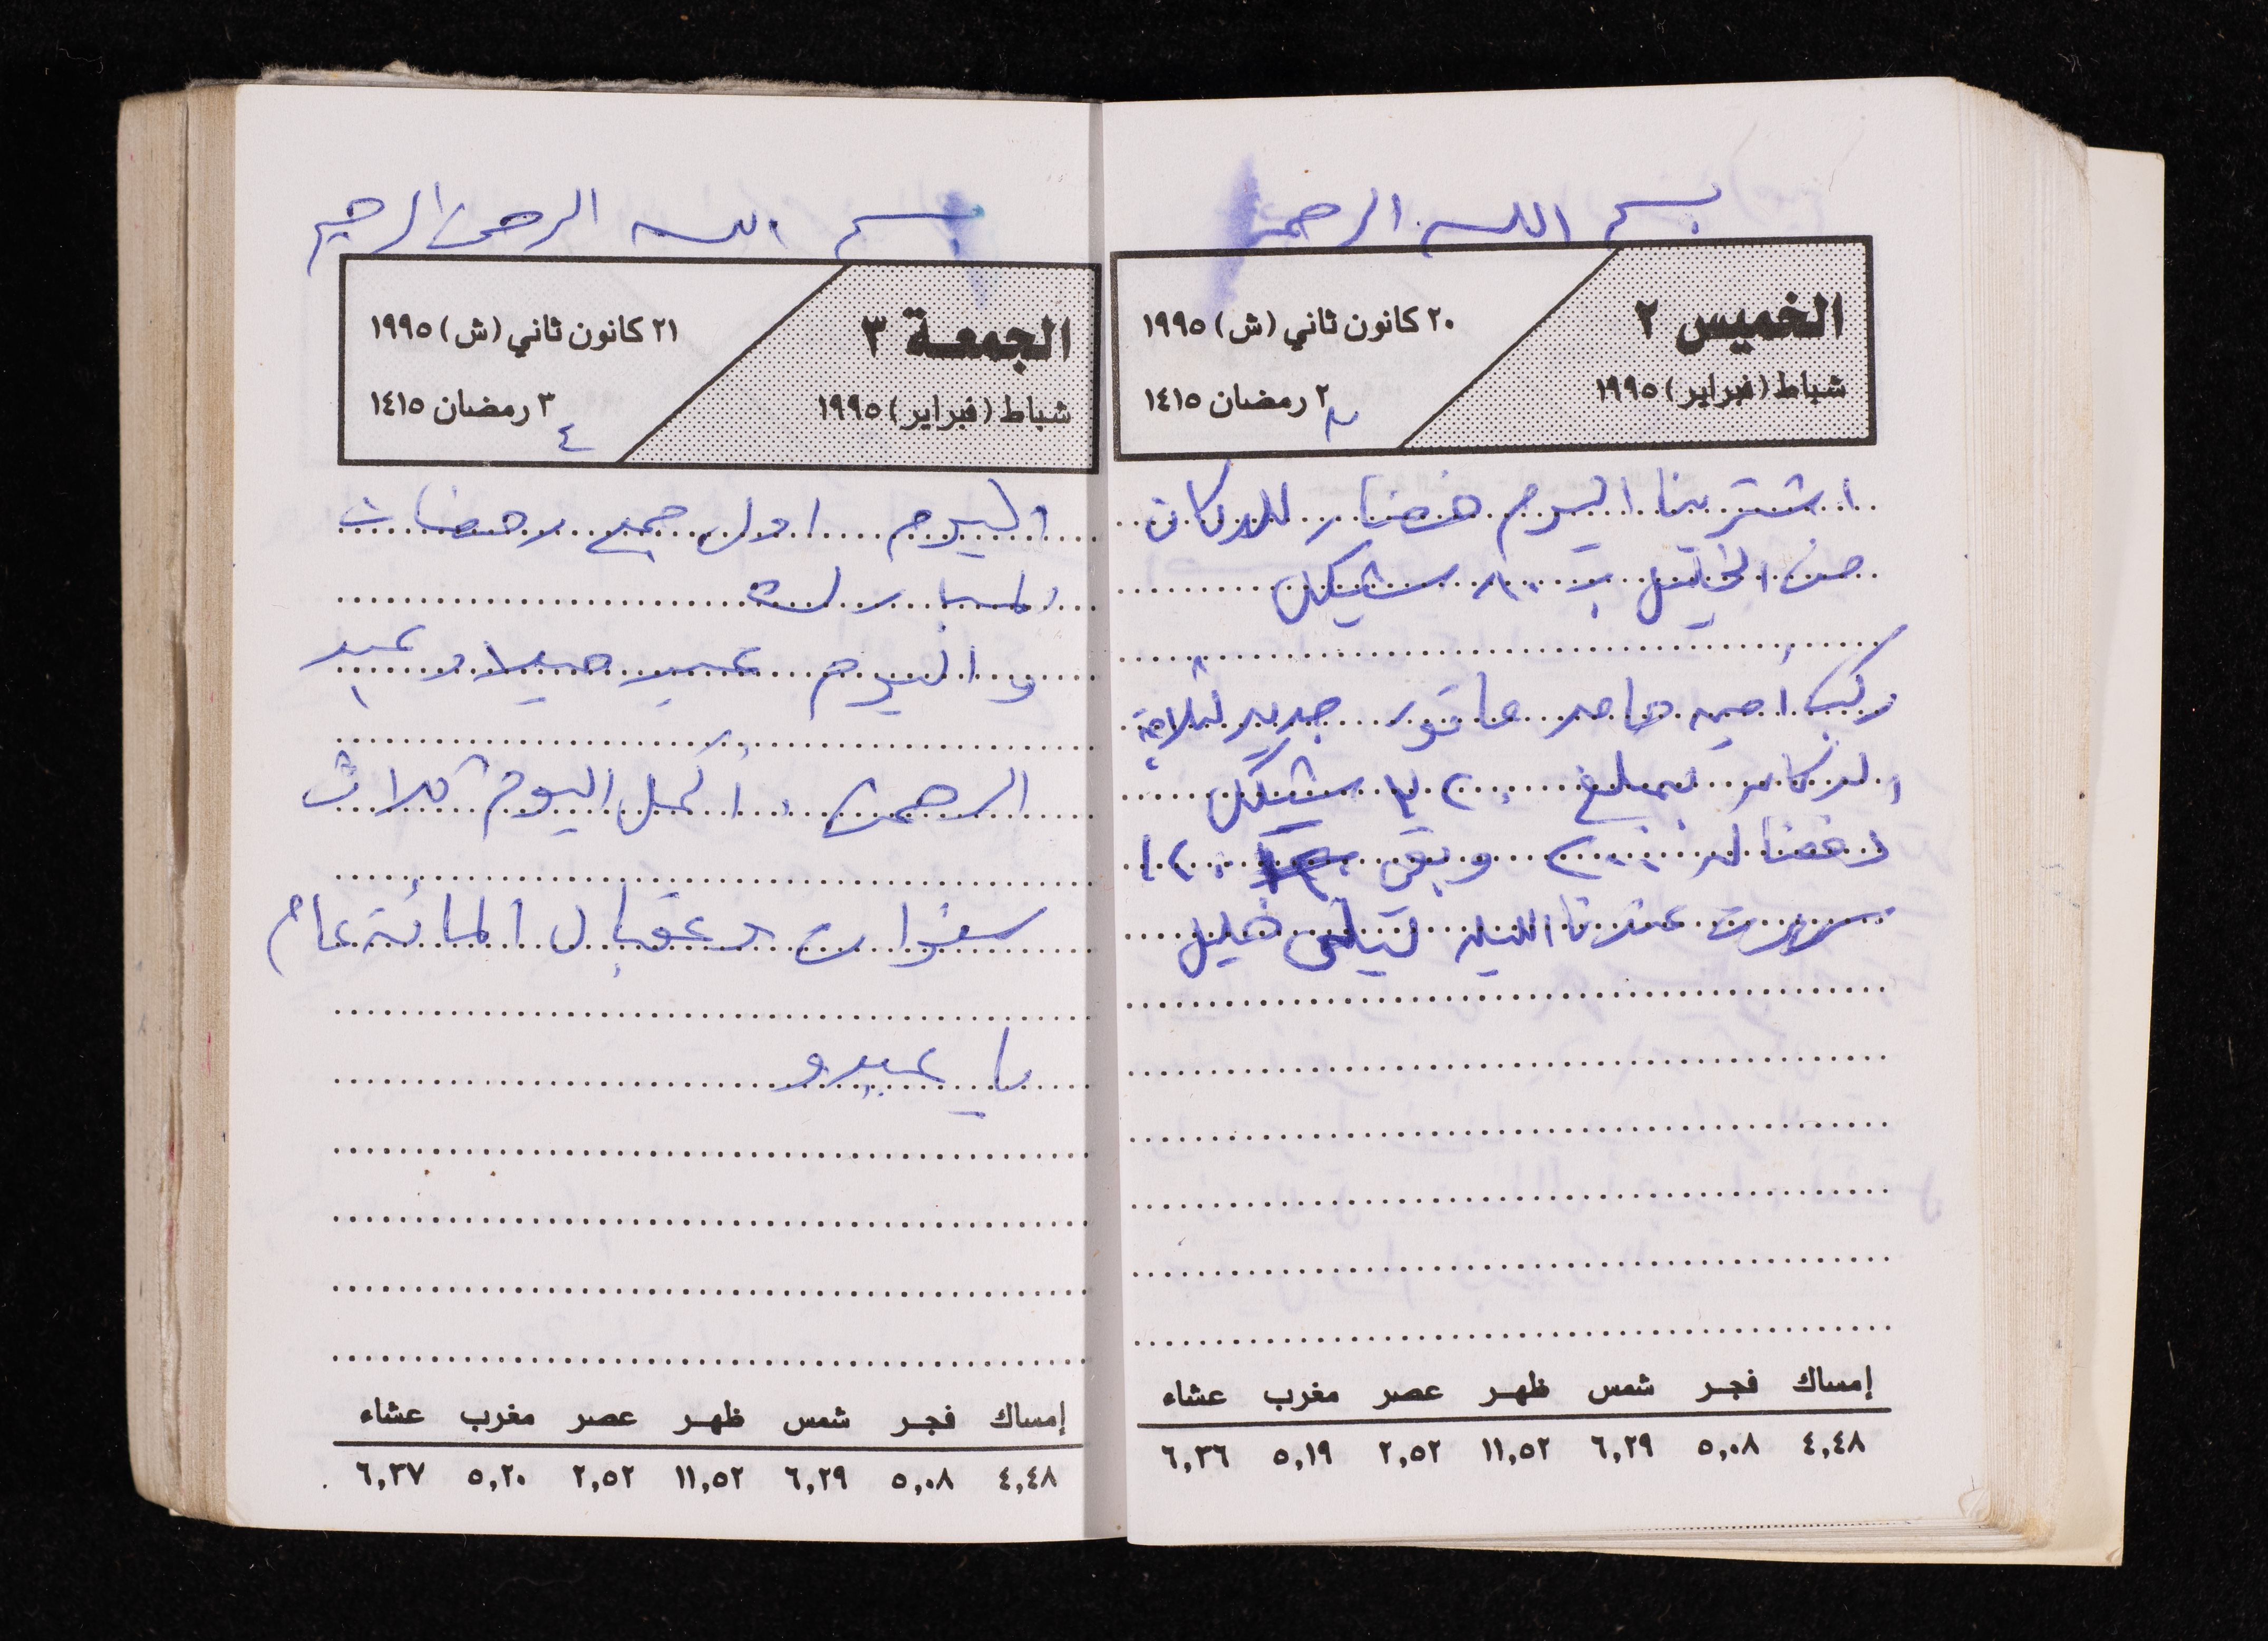 بسم الله الرحمن
الخميس ٢
شباط (فبراير) ١٩٩٥
٢٠ كانون ثاني (ش) ١٩٩٥
٢ رمضان ١٤١٥
٣
اشترينا اليوم خضار للدكان
من الخليل بـ ٨٠٠ شيكل
ركب أمين حامد ماتور جديد لثلاجة
الدكان بمبلغ ٣٢٠ شيكل
دفعنا له ٢٠٠ وبقي ١٢٠
سهرت عندنا الليله ليلى خليل
إمساك فجر شمس ظهر عصر مغرب عشاء
٤,٤٨ ٥,٠٨ ٦,٢٩ ١١,٥٢ ٢,٥٢ ٥,١٩ ٦,٣٦
بسم الله الرحمن الرحيم
الجمعة ٣
شباط (فبراير) ١٩٩٥
٢١ كانون ثاني (ش) ١٩٩٥
٣ رمضان ١٤١٥
٤
اليوم اول جمع رمضان
المبارك
واليوم عيد ميلاد عبد
الرحمن أكمل اليوم ثلاث
سنوات وعقبال المائة عام
يا عبدو
إمساك فجر شمس ظهر عصر مغرب عشاء
٤,٤٨ ٥,٠٨ ٦,٢٩ ١١,٥٢ ٢,٥٢ ٥,٢٠ ٦,٣٧